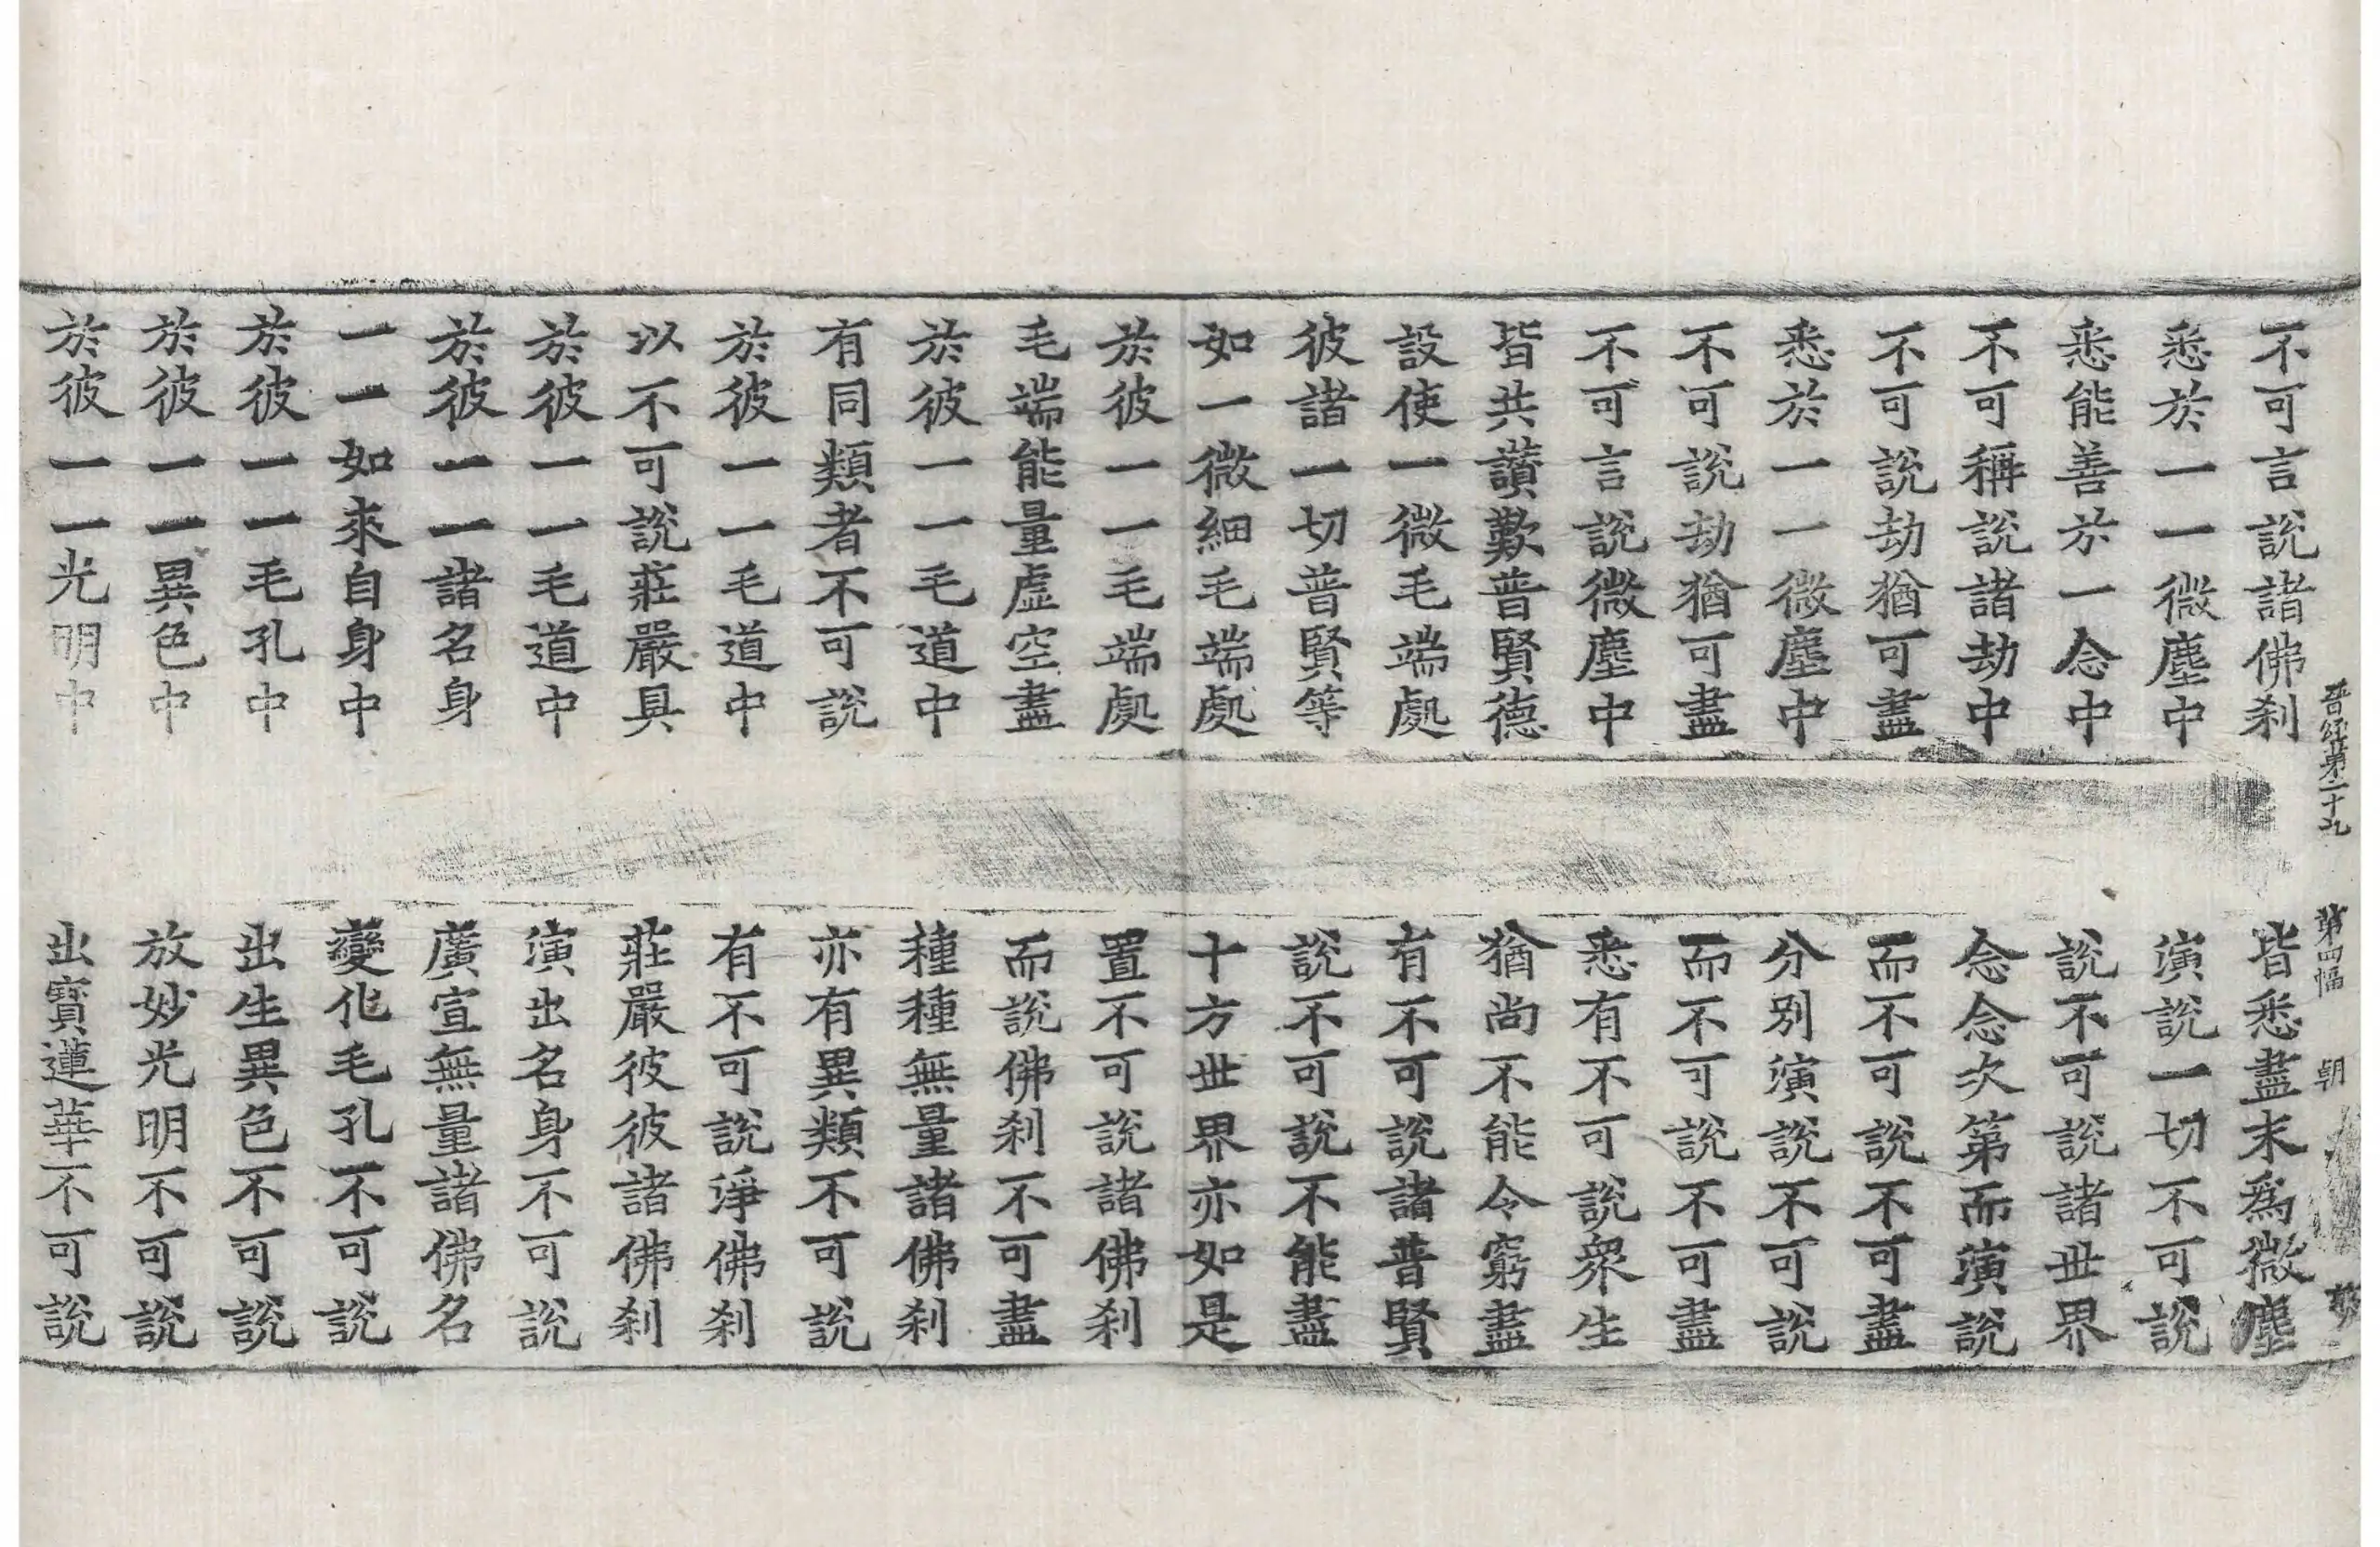 晉經第二十九　第四幅　朝
不可言說諸佛刹　皆悉盡末為微塵
悉於一一微塵中　演說一切不可說
悉能善於一念中　說不可說諸世界
不可稱說諸劫中　念念次第而演說
不可說劫猶可盡　而不可說不可盡
悉於一一微塵中　分別演說不可說
不可說劫猶可盡　而不可說不可盡
不可言說微塵中　悉有不可說衆生
皆共讚歎普賢德　猶尚不能令窮盡
設使一微毛端處　有不可說諸普賢
彼諸一切普賢等　說不可說不能盡
如一微細毛端處　十方世界亦如是
於彼一一毛端處　置不可說諸佛刹
毛端能量虛空盡　而說佛刹不可盡
於彼一一毛道中　種種無量諸佛刹
有同類者不可說　亦有異類不可說
於彼一一毛道中　有不可說淨佛刹
以不可說莊嚴具　莊嚴彼彼諸佛刹
於彼一一毛道中　演出名身不可說
於彼一一諸名身　廣宣無量諸佛名
一一如來自身中　變化毛孔不可說
於彼一一毛孔中　出生異色不可說
於彼一一異色中　放妙光明不可說
於彼一一光明中　出寶蓮華不可說